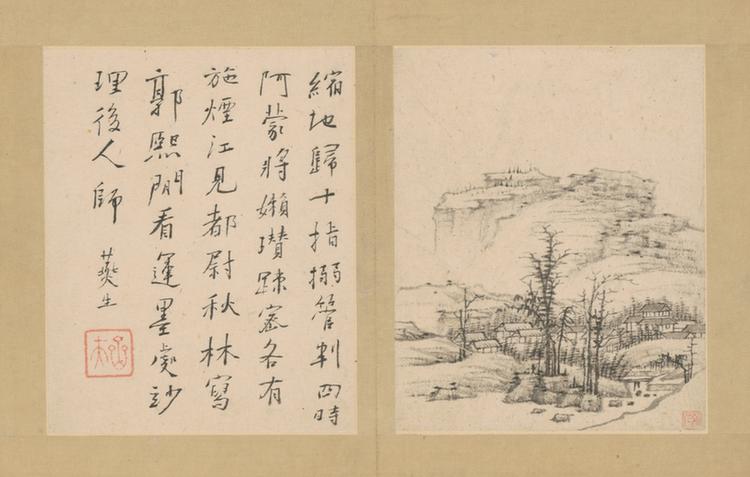 縮地歸十指搦管判四時
阿蒙將嬾瓚踈宻各有
施煙江見都尉秋林寫
郭熙閒看運墨處玅
理後人師